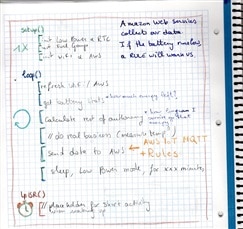 setup()
Amazon Web Services
collects our data
1X
init Low Power & RTC
init Fuel Gauge
init WiFi & AWS
If the battery runs low
a Rule will warn us.
loop()
refresh WiFi / AWS
get battery stats → how much energy left?
calculate rest of autonomy → how long can I
energy
// do real business (measure temp)
send data to AWS
← AWS IoT MQTT
+ Rules
sleep, Low Power mode, for xxx minutes
ISR()
// placeholder for short activity
when waked up